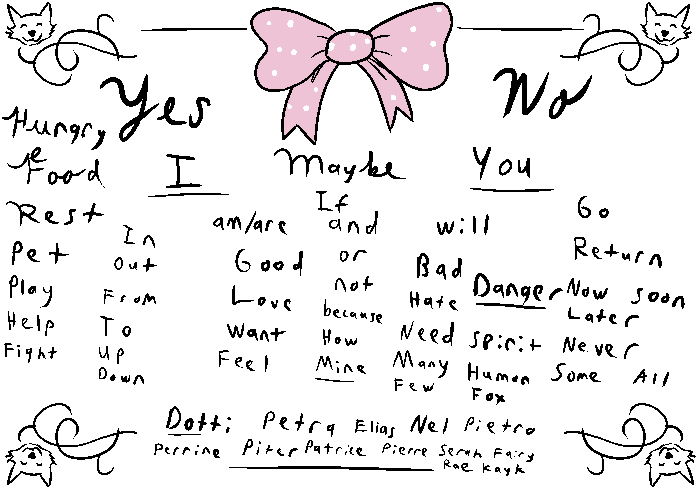 Yes No
Hungry
Food I Maybe You
Rest am/are If and will Go
Pet In Good or Bad Return
Out
Play From Love not Hate Danger Now Soon
because Later
Help To Want How Need Spirit Never
Fight Up Feel Mine Many Human Some All
Down Few Fox
Dotti Petra Elias Nel Pietro
Perrine Piter Patrice Pierre Serah Fairy
Rae Kayk